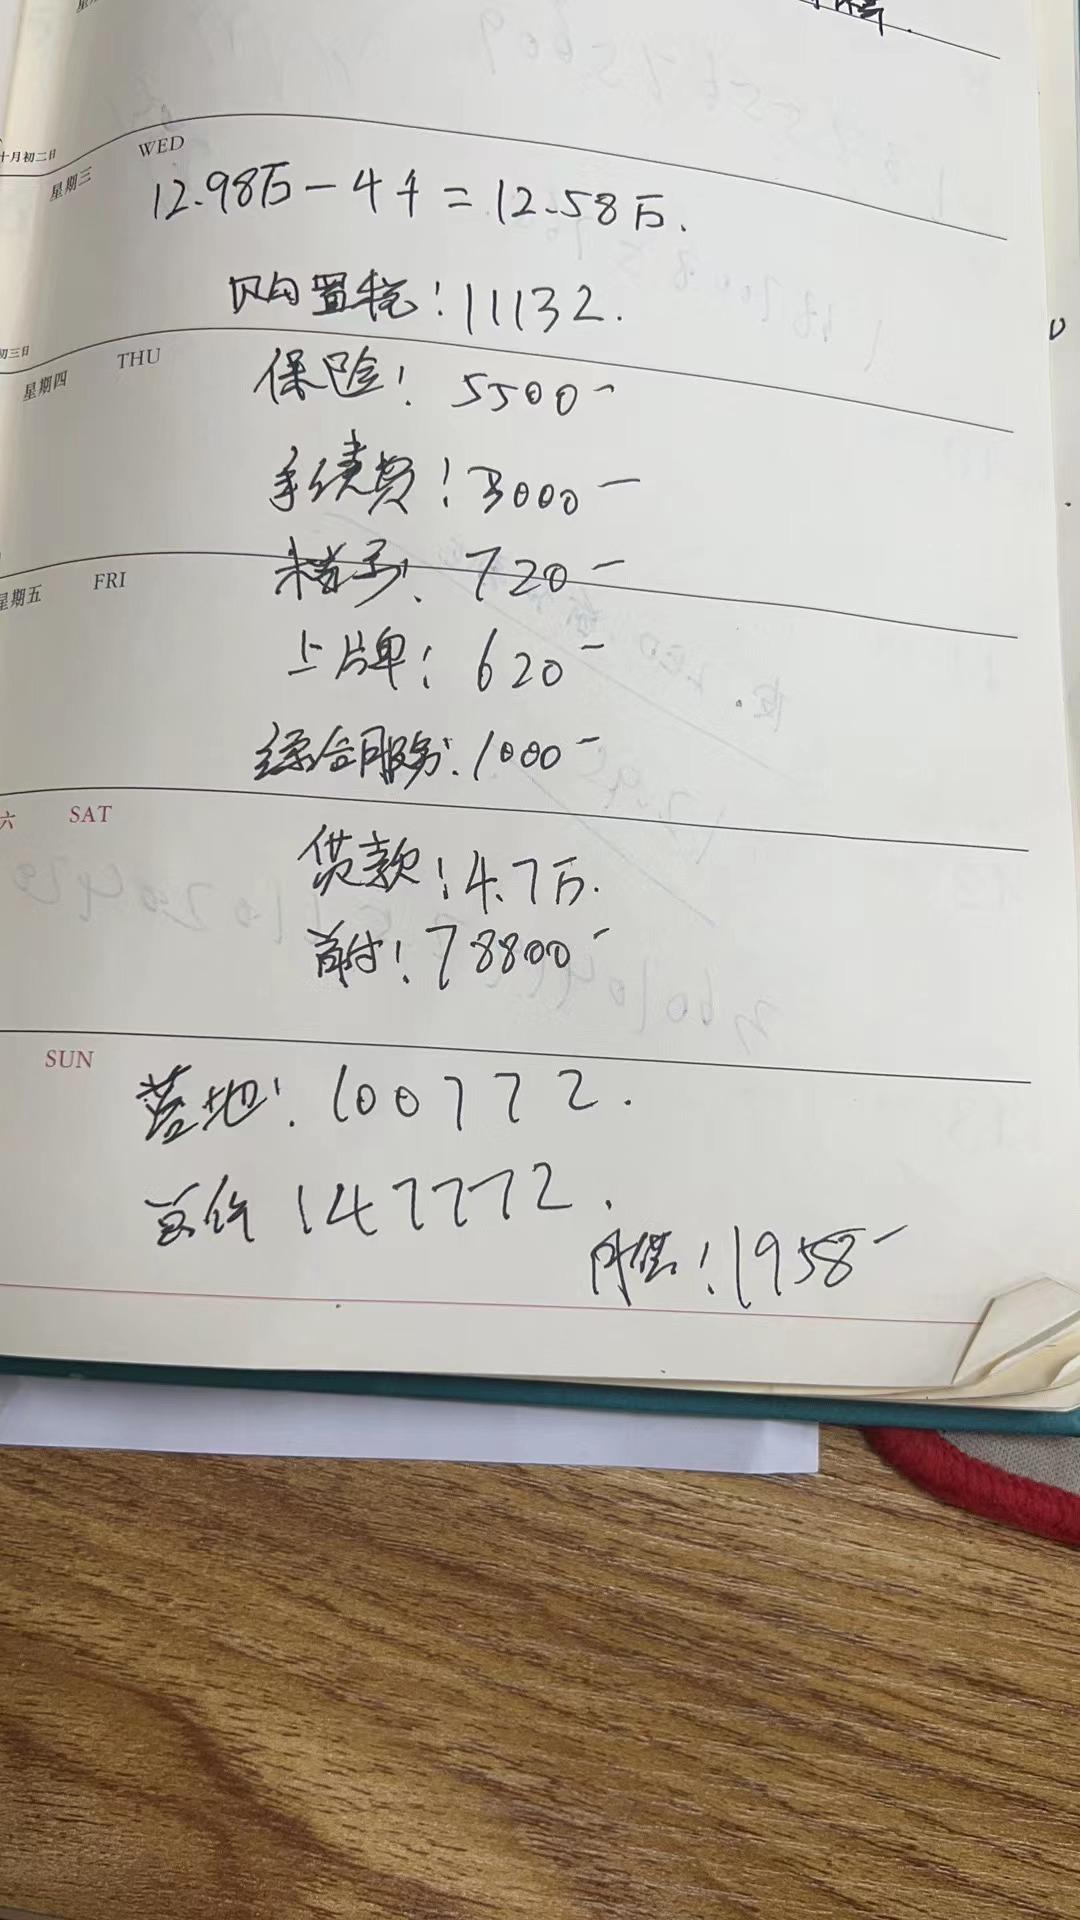 十月初二日
WED
星期三
12.98万-4千=12.58万.
购置税:11132.
初三日
THU
星期四
保险:5500-
手续费:3000-
720-
FRI
星期五
上牌:620-
综合服务:1000-
六 SAT
贷款:4.7万.
首付:78800-
SUN
落地:100772.
总价 147772.
月供:1958-